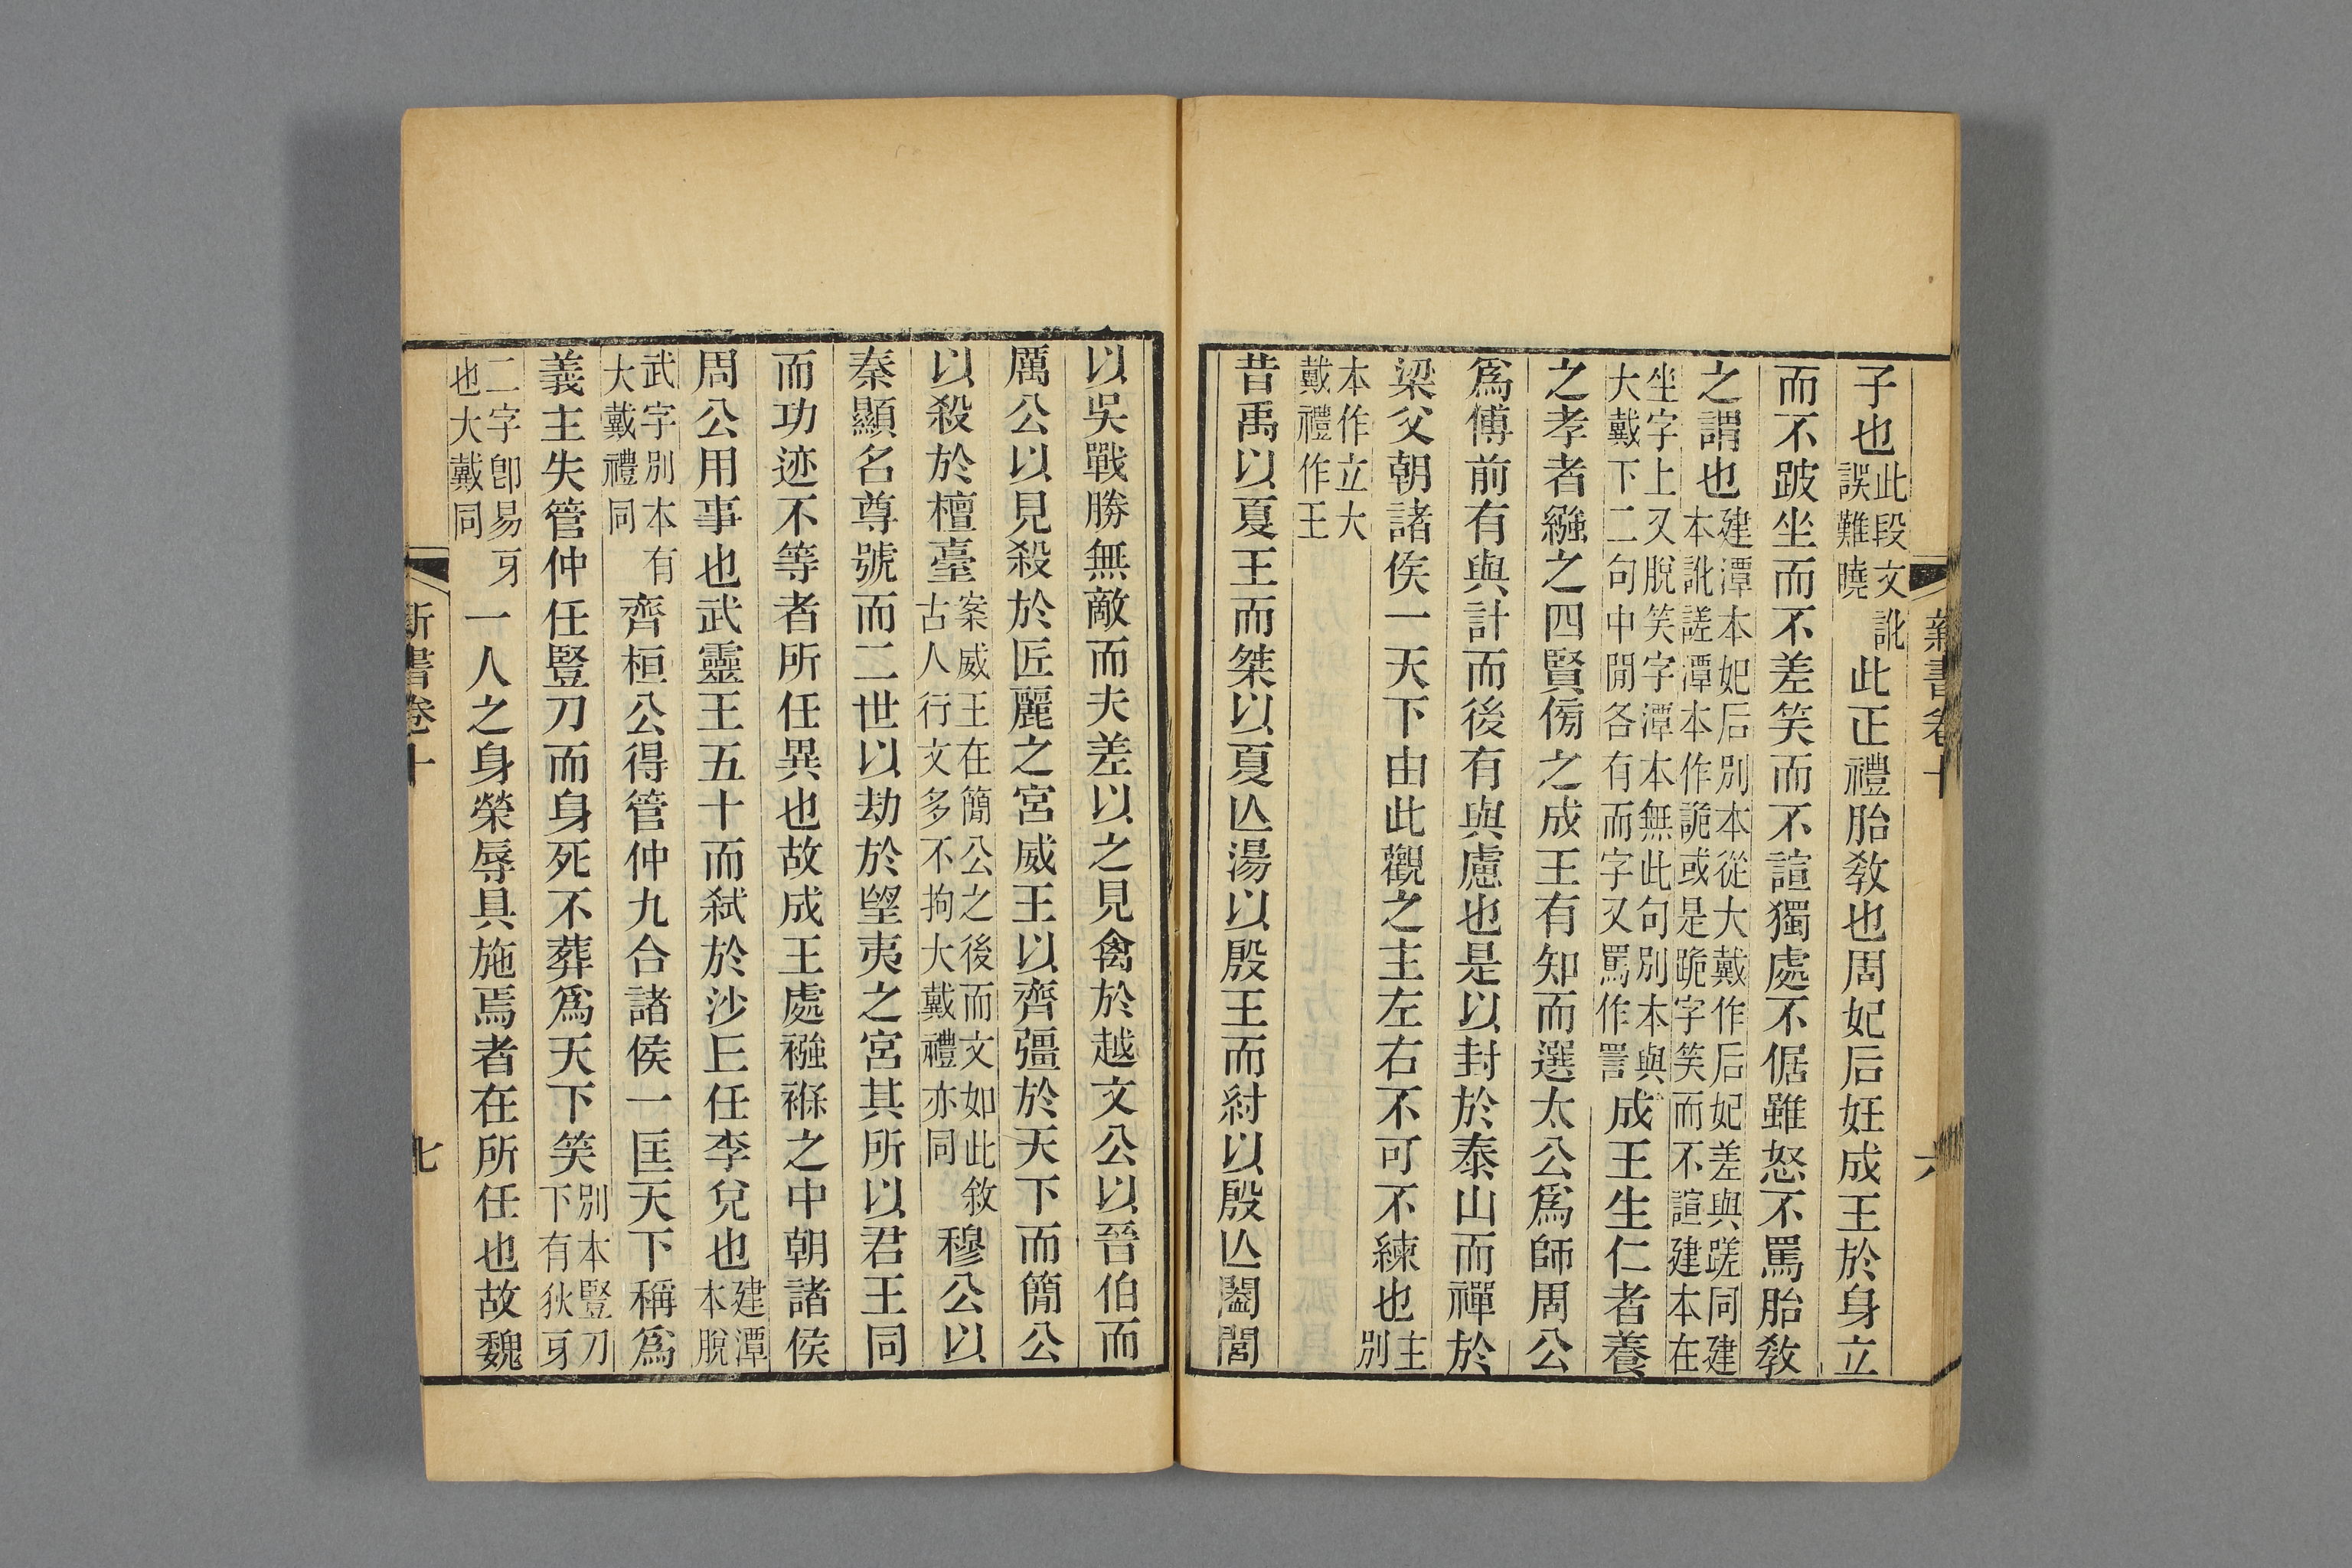 新書卷十
六
子也此段文訛誤難曉此正禮胎敎也周妃后妊成王於身立
而不跛坐而不差笑而不諠獨處不倨雖怒不罵胎敎
之謂也建潭本妃后別本從大戴作后妃差與蹉同建本訛諾潭本作詭或是跪字笑而不諠建本在
坐字上又脫笑字潭本無此句別本與大戴下二句中閒各有而字又罵作詈成王生仁者養
之孝者繦之四賢傍之成王有知而選太公爲師周公
爲傅前有與計而後有與慮也是以封於泰山而禪於
梁父朝諸侯一天下由此觀之主左右不可不練也主別
本作立大戴禮作王
昔禹以夏王而桀以夏亾湯以殷王而紂以殷亾闔閭
以吳戰勝無敵而夫差以之見禽於越文公以晉伯而
厲公以見殺於匠麗之宮威王以齊彊於天下而簡公
以殺於檀臺案威王在簡公之後而文如此敘古人行文多不拘大戴禮亦同穆公以
秦顯名尊號而二世以劫於望夷之宮其所以君王同
而功迹不等者所任異也故成王處襁褓之中朝諸侯
周公用事也武靈王五十而弑於沙丘任李兌也建潭本脫
武字別本有大戴禮同齊桓公得管仲九合諸侯一匡天下稱爲
義主失管仲任豎刀而身死不葬爲天下笑別本豎刀下有狄牙
二字卽易牙也大戴同一人之身榮辱具施焉者在所任也故魏
新書卷十
七